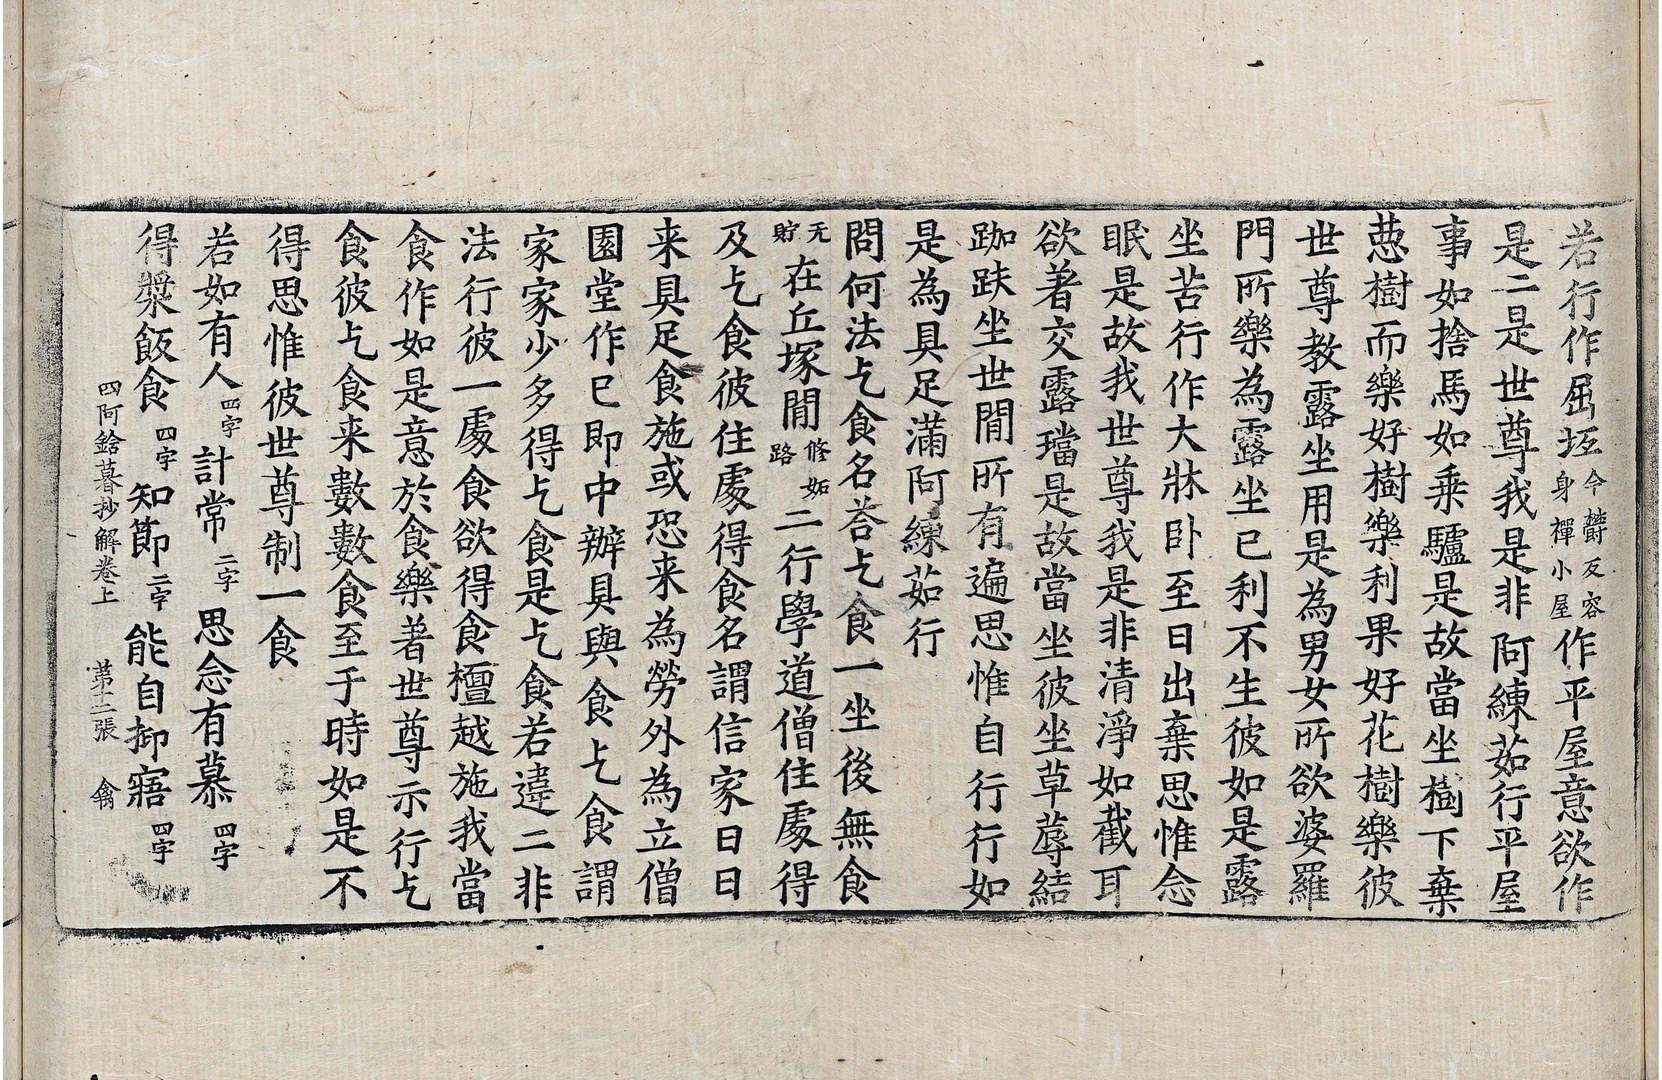 若行作屈㘴今欝反容身禪小屋作平屋意欲作
是二是世尊我是非阿練茹行平屋
事如捨馬如乗驢是故當坐樹下棄
䓗樹而樂好樹樂利果好花樹樂彼
世尊教露坐用是為男女所欲婆羅
門所樂為露坐已利不生彼如是露
坐苦行作大牀卧至日出棄思惟念
眠是故我世尊我是非清淨如截耳
欲著交露璫是故當坐彼坐草蓐結
跏趺坐世間所有遍思惟自行行如
是為具足滿阿練茹行
問何法乞食名荅乞食一坐後無食
无貯在丘塚間修妬路二行學道僧住處得
及乞食彼住處得食名謂信家日日
来具足食施或恐来為勞外為立僧
園堂作已即中辦具與食乞食謂
家家少多得乞食是乞食若違二非
法行彼一處食欲得食檀越施我當
食作如是意於食樂著世尊示行乞
食彼乞食来數數食至于時如是不
得思惟彼世尊制一食
若如有人四字計常二字思念有慕四字
得漿飯食四字知節二字能自抑寤四字
四阿鋡暮抄解卷上 第十二張 翕